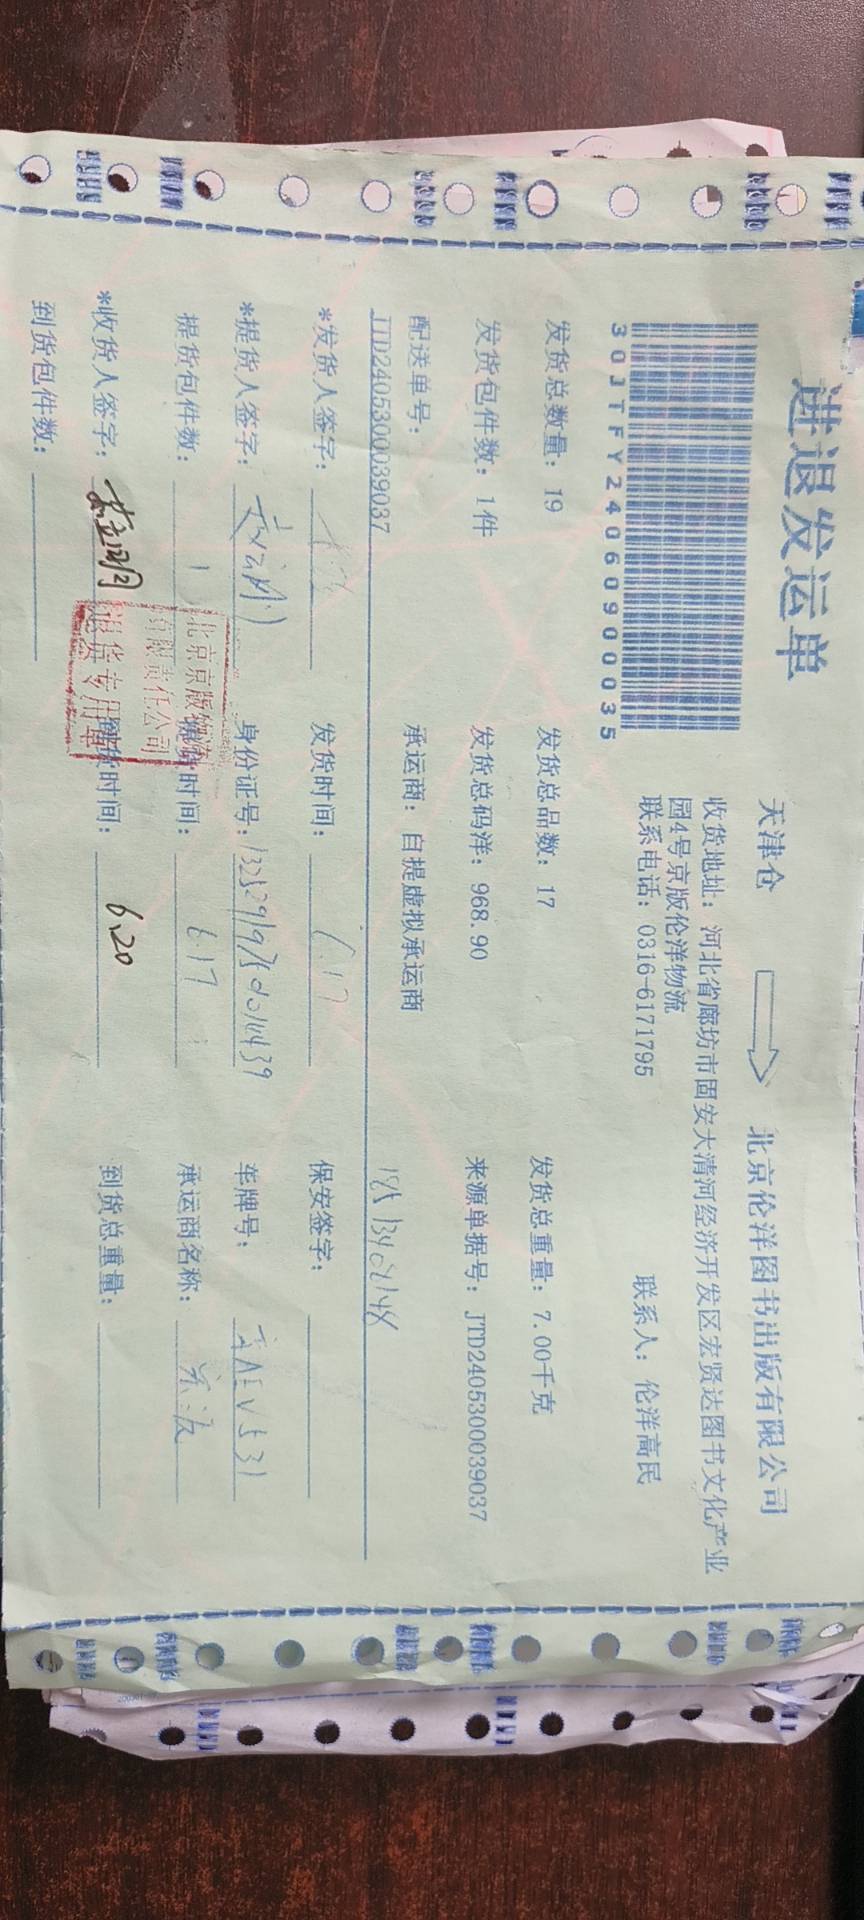 进退发运单
天津仓
北京伦洋图书出版有限公司
收货地址：河北省廊坊市固安大清河经济开发区宏贤达图书文化产业
园4号京版伦洋物流
联系电话：0316-6171795 联系人：伦洋高民
30JTFY24060900035
发货总数量：19 发货总品数：17 发货总重量：7.00千克
发货包件数：1件 发货总码洋：968.90 来源单据号：JTD2405300039037
配送单号： 承运商：自提虚拟承运商
JTD2405300039037
*发货人签字： 发货时间：6.17 保安签字：
*提货人签字： 身份证号： 车牌号：
提货包件数：1 提货时间：6.17 承运商名称：
*收货人签字： 到货时间：6.20 到货总重量：
到货包件数：
北京京版物流
有限责任公司
退货专用章